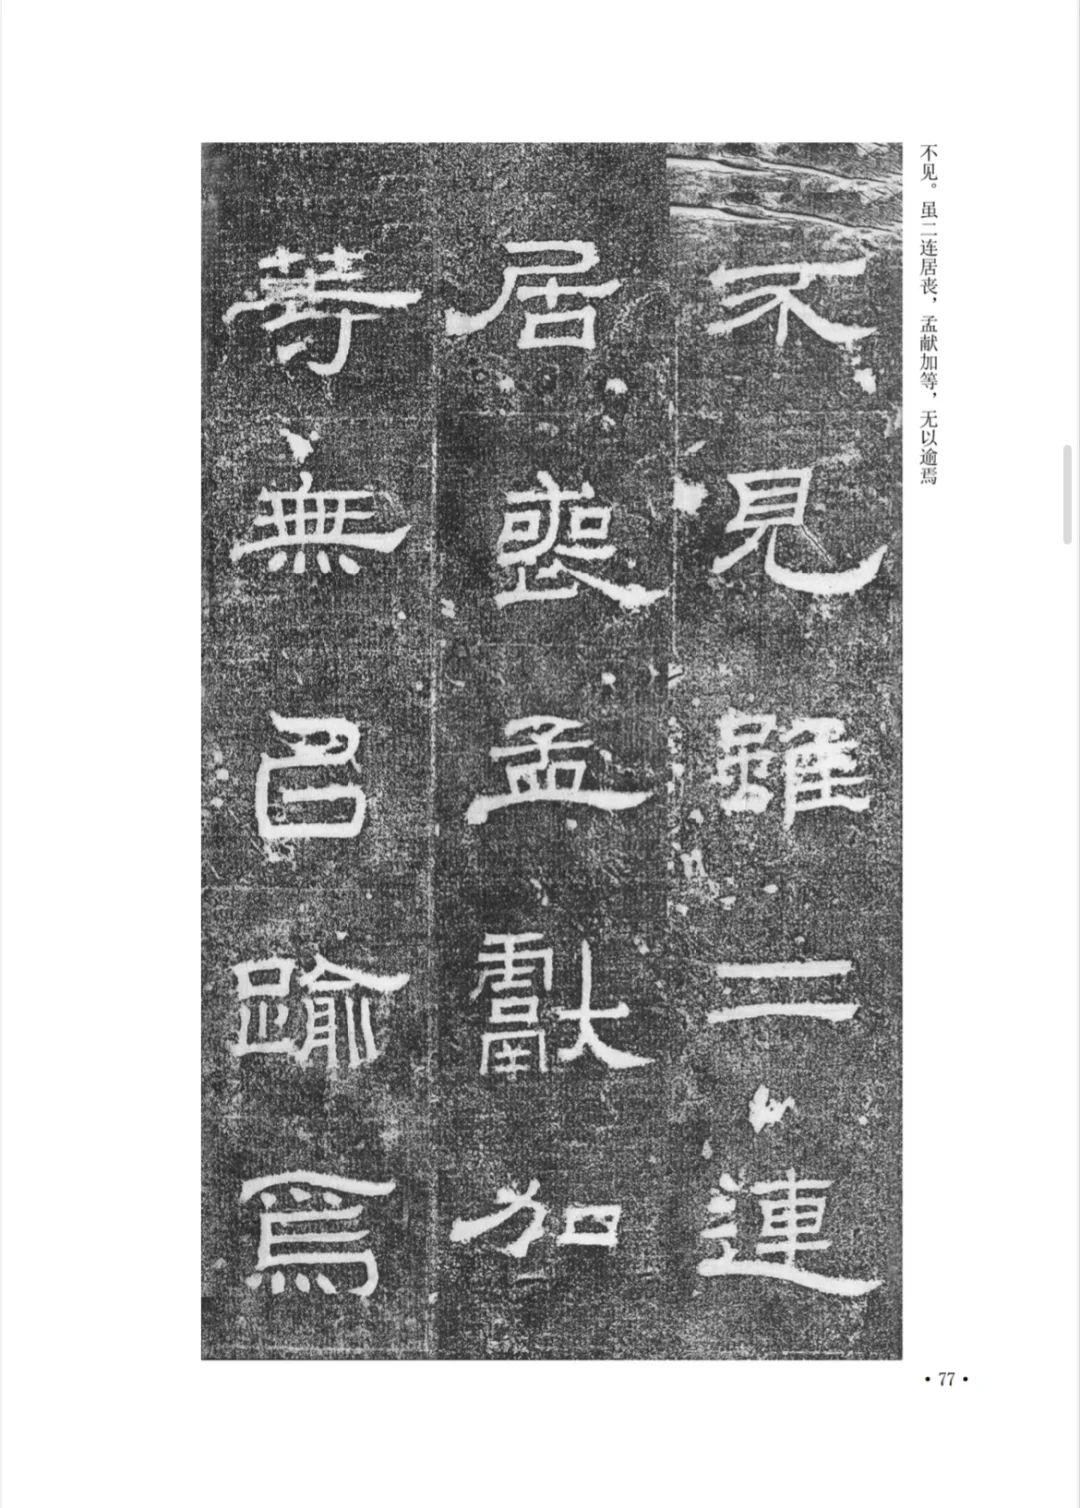 不见。虽二连居丧，孟献加等，无以逾焉
不見雖二連
居喪孟獻加
等無㠯踰焉
• 77 •